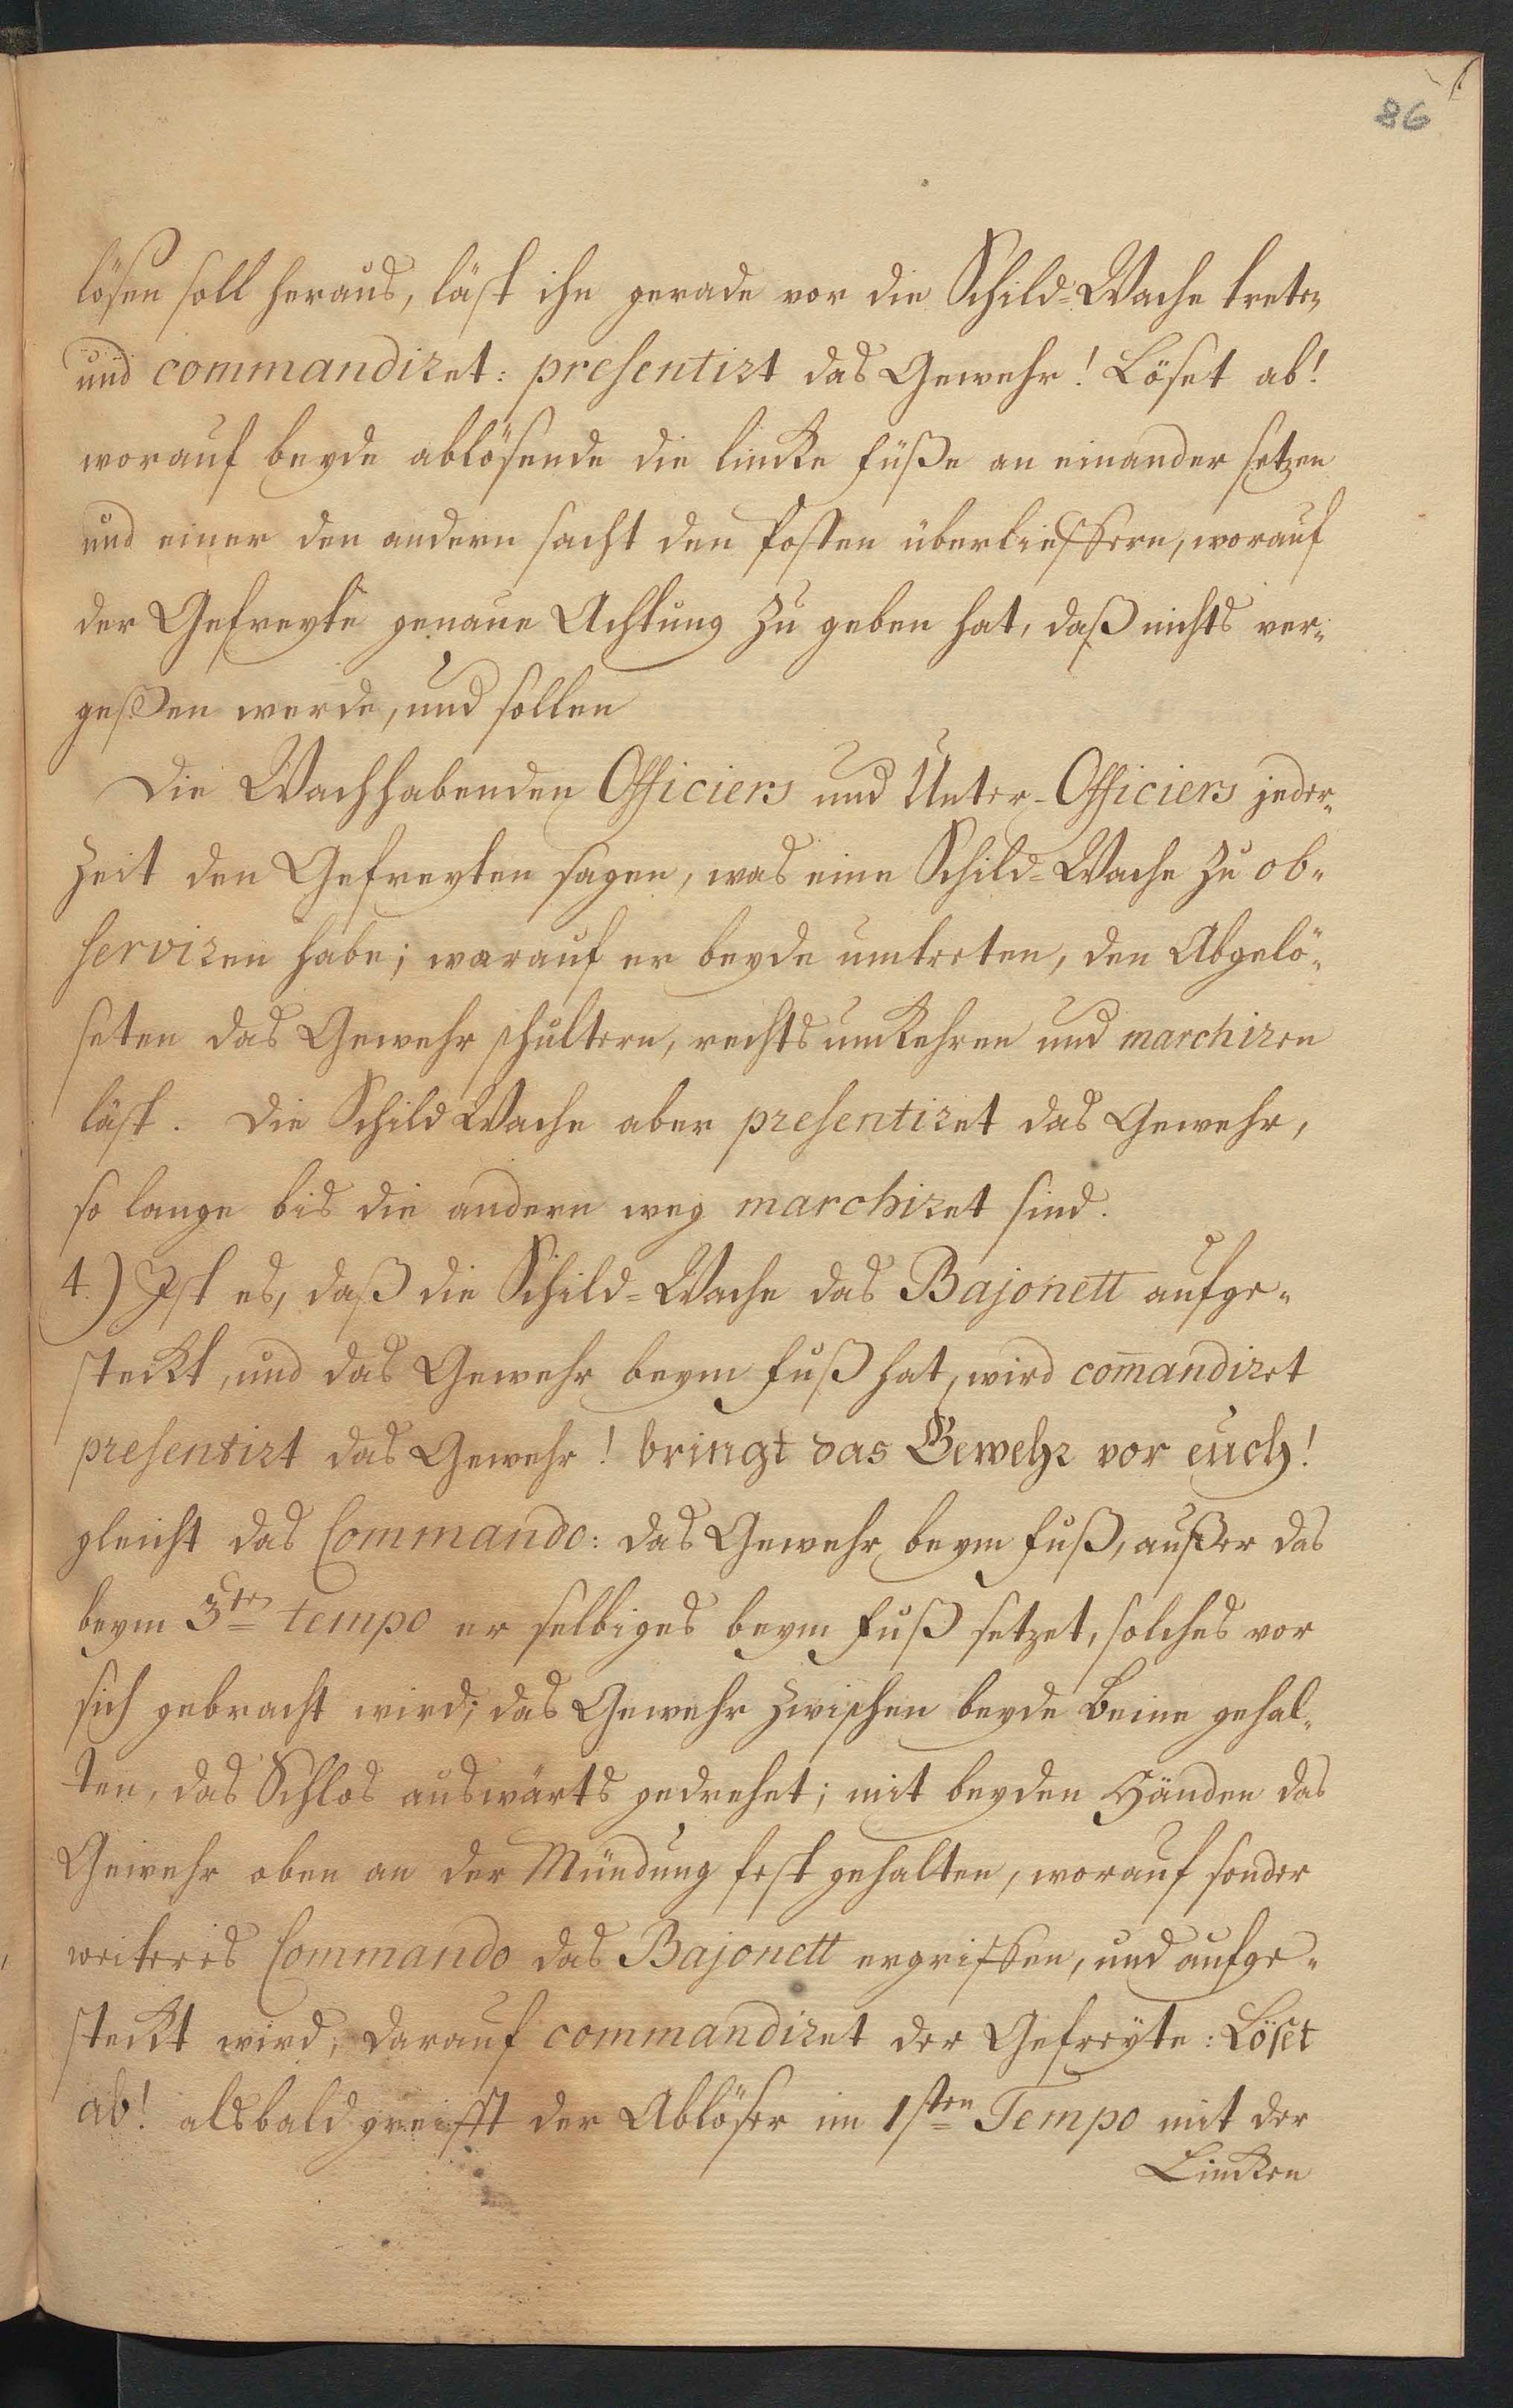 86
lösen soll heraus, läst ihn gerade vor die Schild-Wache treten
und commandiret: presentirt das Gewehr! Löset ab!
worauf beyde ablösende die lincke Füße an einander setzen
und einer den andern sacht den Posten überlieffern, worauf
der Gefreyte genaue Achtung zu geben hat, daß nichts ver-
geßen werde, und sollen
Die Wachhabenden Officiers und Unter-Officiers jeder-
zeit den Gefreyten sagen, was eine Schild-Wache zu ob-
serviren habe; warauf er beyde umtreten, den Abgelö-
seten das Gewehr schultern, rechts umkehren und marchiren
läst. Die Schild Wache aber presentiret das Gewehr,
so lange bis die andern weg marchiret sind.
4.) Ist es, daß die Schild-Wache das Bajonett aufge-
steckt, und das Gewehr beym Fuß hat, wird com̄andiret
presentirt das Gewehr! bringt das Gewehr vor euch!
gleicht das Commando: das Gewehr beym Fuß, außer das
beym 3ten tempo er selbiges beym Fuß setzet, solches vor
sich gebracht wird; das Gewehr zwischen beyde Beine gehal-
ten, das Schlos auswärts gedrehet; mit beyden Händen das
Gewehr oben an der Mündung fest gehalten, worauf sonder
weiteres Commando das Bajonett ergriffen, und aufge-
steckt wird; darauf commandiret der Gefreyte: Löset
ab! alsbald greifft der Ablöser im 1sten Tempo mit der
Lincken